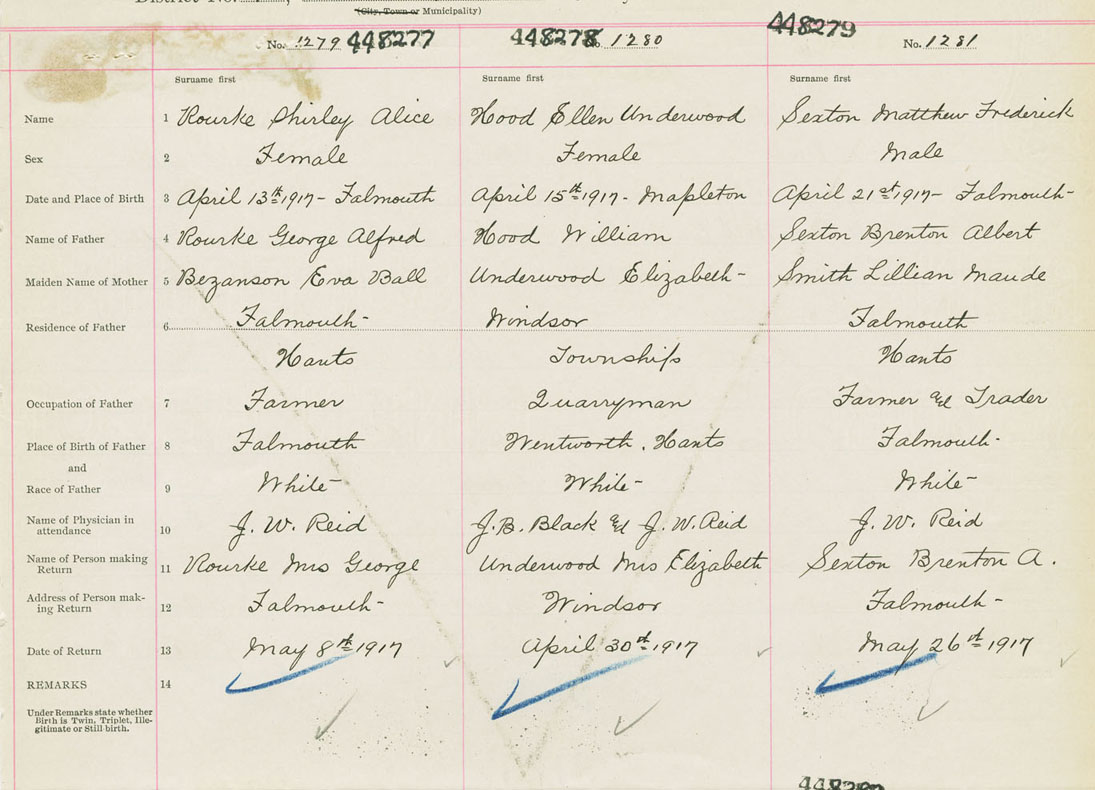 District No.
(City, Town or Municipality)
No. 1279 448277 448278 No. 1280 448279 No. 1281
Surname first Surname first Surname first
Name 1 Rourke Shirley Alice Hood Ellen Underwood Sexton Matthew Frederick
Sex 2 Female Female Male
Date and Place of Birth 3 April 13th 1917- Falmouth April 15th 1917- Mapleton April 21st 1917- Falmouth-
Name of Father 4 Rourke George Alfred Hood William Sexton Brenton Albert
Maiden Name of Mother 5 Bezanson Eva Ball Underwood Elizabeth- Smith Lillian Maude
Residence of Father 6 Falmouth- Windsor Falmouth
Hants Township Hants
Occupation of Father 7 Farmer Quarryman Farmer and Trader
Place of Birth of Father 8 Falmouth Wentworth, Hants Falmouth-
and
Race of Father 9 White- White- White-
Name of Physician in
attendance 10 J. W. Reid J. B. Black and J. W. Reid J. W. Reid
Name of Person making
Return 11 Rourke Mrs George Underwood Mrs Elizabeth Sexton Brenton A.
Address of Person mak-
ing Return 12 Falmouth- Windsor Falmouth-
Date of Return 13 May 8th 1917 April 30th 1917 May 26th 1917
REMARKS 14
Under Remarks state whether
Birth is Twin, Triplet, Ille-
gitimate or Still birth.